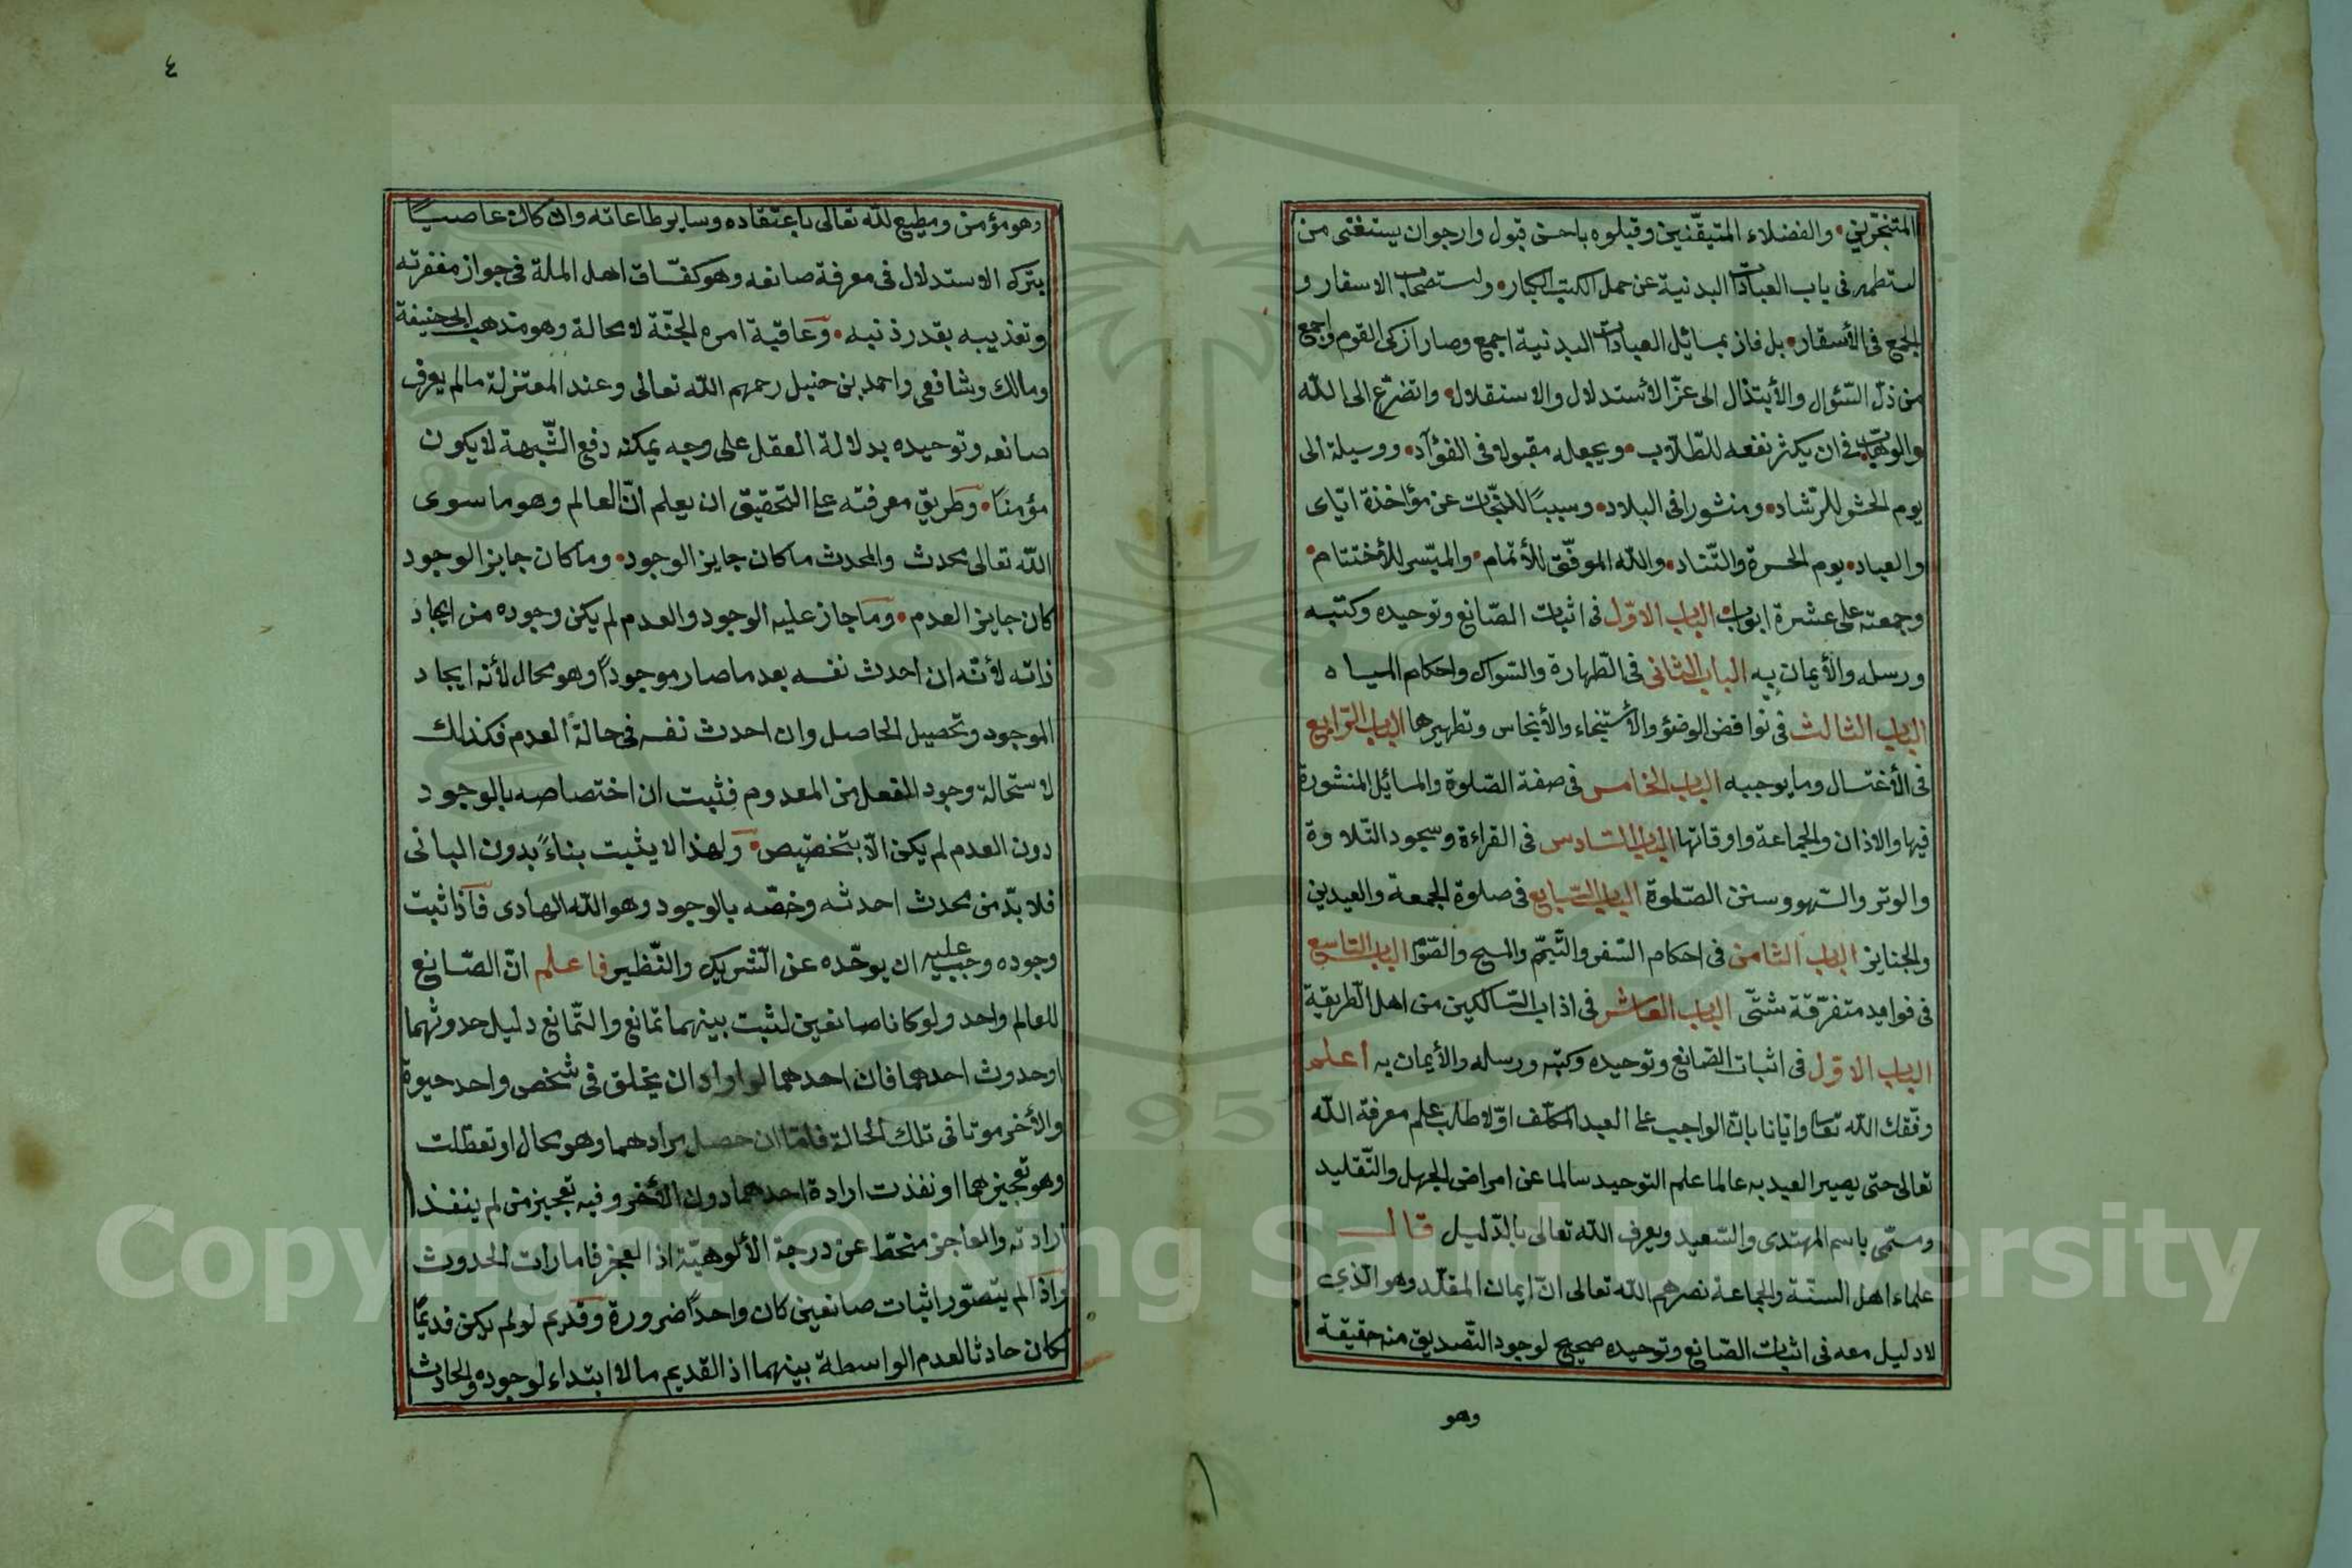 المتبحّرين • والفضلاء المتيقّنين وقبلوه باحسن قبول وارجوان يستغنى من
استظهر فى باب العبادات البدنية عن حمل الكتب الكبار • واستصحاب الاسفار و
الجمع فى الأسفار • بل فاز بمسائيل العبادات البدنية اجمع وصار ازكى القوم واجمع
من ذلّ السّئوال والأبتذال الى عزّ الأستدلال والاستقلال • واتضرّع الى الله
والوهّاب فى ان يكثر نفعه للطّلاب • ويجعله مقبولا فى الفؤآد • ووسيلة الى
يوم الحشر للرّشاد • ومنشورا فى البلاد • وسببًا للنّجات عن مؤاخذة ايّاى
والعباد • يوم الحسرة والتّناد • والله الموفّق للأتمام • والميّسر للأختتام •
وجمعته على عشرة ابواب الباب الاوّل فى اثبات الصّانع وتوحيده وكتبه
ورسله والأيمان به الباب الثانى فى الطّهارة والسّواك واحكام المياه
الباب الثالث فى نواقض الوضؤ والأستنجاء والأنجاس وتطهيرها الباب الرّابع
فى الأغتسال وما يوجبه الباب الخامس فى صفة الصّلوة والمسائيل المنشورة
فيها والاذان والجماعة واوقاتها الباب السّادس فى القراءة وسجود التّلاوة
والوتر والسّهو وسنن الصّلوة الباب السّابع فى صلوة الجمعة والعيدين
والجنايز الباب الثامن فى احكام السّفر والتّيمّم والمسح والصّوم الباب التاسع
فى فوايد متفرّقة شتّى الباب العاشر فى اداب السّالكين من اهل الطّريقة
الباب الاوّل فى اثبات الصّانع وتوحيده وكتبه ورسله والأيمان به أعلم
وفّقك الله تعا وايّانا بانّ الواجب على العبد المكلّف اوّلا طلب علم معرفة الله
تعالى حتى يصير العبد به عالما علم التوحيد سالما عن امراض الجهل والتّقليد
وسمّى باسم المهتدى والسّعيد ويعرف الله تعالى بالدّليل قال
علماء اهل السنّة والجماعة نصرهم الله تعالى انّ ايمان المقلّد وهو الّذى
لا دليل معه فى اثبات الصّانع وتوحيده صحيح لوجود التّصديق منه حقيقة
وهو
٤
وهو مؤمن ومطيع لله تعالى باعتقاده وساير طاعاته وان كان عاصيًا
بترك الاستدلال فى معرفة صانعه وهو كفسّاق اهل الملة فى جواز مغفرته
وتعذيبه بقدر ذنبه • وعاقبة امره الجنّة لا محالة وهو مذهب ابى حنيفة
ومالك وشافعى واحمد بن حنبل رحمهم الله تعالى وعند المعتزلة ما لم يعرف
صانعه وتوحيده بدلالة العقل على وجه يمكنه دفع الشّبهة لا يكون
مؤمنًا • وطريق معرفته على التحقيق ان يعلم انّ العالم وهو ما سوى
الله تعالى محدث والمحدث ما كان جايز الوجود • وما كان جايز الوجود
كان جايز العدم • وما جاز عليه الوجود والعدم لم يكن وجوده من ايجاد
ذاته لأنّه ان احدث نفسه بعد ما صار موجودًا وهو محال لأنه ايجاد
الموجود وتحصيل الحاصل وان احدث نفسه فى حالة العدم فكذلك
لاستحالة وجود الفعل من المعدوم فثبت ان اختصاصه بالوجود
دون العدم لم يكن الّا بتخصيص • ولهذا لا يثبت بناءً بدون البانى
فلا بدّ من محدث احدثه وخصّه بالوجود وهو الله الهادى فاذا ثبت
وجوده وجب عليه ان يوحّده عن الشريك والنّظير فاعلم انّ الصّانع
للعالم واحد ولو كانا صانعين لثبت بينهما تمانع والتّمانع دليل حدوثهما
اوحدوث احدهما فان احدهما لو اراد ان يخلق فى شخص واحد حيوة
والأخر موتا فى تلك الحالة فامّا ان حصل مرادهما وهو محال او تعطّلت
وهو تعجيزهما او نفذت ارادة احدهما دون الأخر وفيه تعجيز من لم ينفذ
ارادته والعاجز منحطّ عن درجة الألوهيّة اذ العجز فامارات الحدوث
واذا لم يتصوّر اثبات صانعين كان واحدًا ضرورة وقديم لو لم يكن قديمًا
كان حادثا لعدم الواسطة بينهما اذ القديم ما لا ابتداء لوجوده والحادث
Copyright © King Saud University
1957